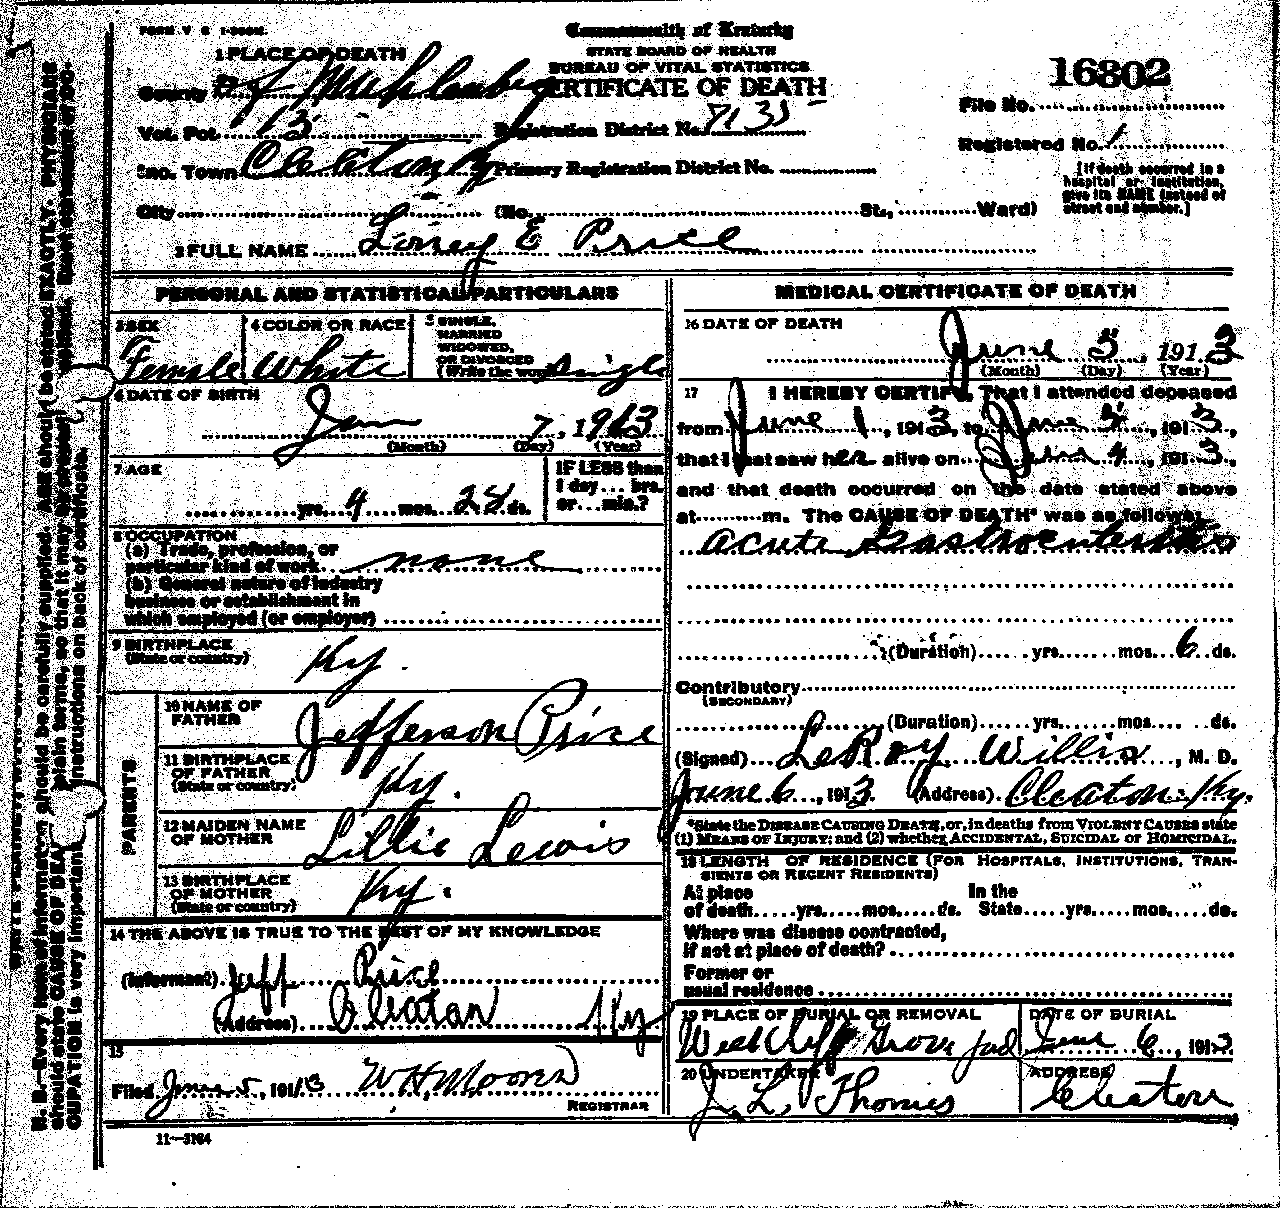 FORM V S 1-200M.
Commonwealth of Kentucky
STATE BOARD OF HEALTH
BUREAU OF VITAL STATISTICS
CERTIFICATE OF DEATH
16802
File No.
Registered No. 1
[If death occurred in a hospital or institution, give its NAME instead of street and number.]
1 PLACE OF DEATH
County of Muhlenberg
Vot. Pct. 13 Registration District No. 7135
Inc. Town Cleaton Ky Primary Registration District No.
City (No. St., Ward)
2 FULL NAME E Price
PERSONAL AND STATISTICAL PARTICULARS
3 SEX Female
4 COLOR OR RACE White
5 SINGLE, MARRIED WIDOWED, OR DIVORCED (Write the word) Single
6 DATE OF BIRTH
Jan 7, 1913
(Month) (Day) (Year)
7 AGE
yrs. 4 mos. 28 ds.
IF LESS than 1 day... hrs. or...min.?
8 OCCUPATION
(a) Trade, profession, or
particular kind of work none
(b) General nature of industry
business or establishment in
which employed (or employer)
9 BIRTHPLACE
(State or country) Ky.
PARENTS
10 NAME OF FATHER Jefferson Price
11 BIRTHPLACE OF FATHER (State or country) Ky.
12 MAIDEN NAME OF MOTHER Lillie Lewis
13 BIRTHPLACE OF MOTHER (State or country) Ky.
14 THE ABOVE IS TRUE TO THE BEST OF MY KNOWLEDGE
(Informant) Jeff Price
(Address) Cleatan Ky
15
Filed June 5, 1913 W H Moore
REGISTRAR
11—3164
MEDICAL CERTIFICATE OF DEATH
16 DATE OF DEATH
June 5, 1913
(Month) (Day) (Year)
17 I HEREBY CERTIFY, That I attended deceased
from June 1, 1913, to June 4, 1913,
that I last saw her alive on June 4, 1913,
and that death occurred on the date stated above
at m. The CAUSE OF DEATH* was as follows:
acute Gastroenteritis
(Duration) yrs. mos. 6 ds.
Contributory
(SECONDARY)
(Duration) yrs. mos. ds.
(Signed) LeRoy Willis, M. D.
June 6, 1913. (Address) Cleaton, Ky.
*State the DISEASE CAUSING DEATH, or, in deaths from VIOLENT CAUSES state
(1) MEANS OF INJURY; and (2) whether ACCIDENTAL, SUICIDAL OR HOMICIDAL.
18 LENGTH OF RESIDENCE (FOR HOSPITALS, INSTITUTIONS, TRANSIENTS OR RECENT RESIDENTS)
At place of death yrs. mos. ds. In the State yrs. mos. ds.
Where was disease contracted,
if not at place of death?
Former or
usual residence
19 PLACE OF BURIAL OR REMOVAL
DATE OF BURIAL
June 6, 1913
20 UNDERTAKER
J. L. Thomas
ADDRESS
Cleaton